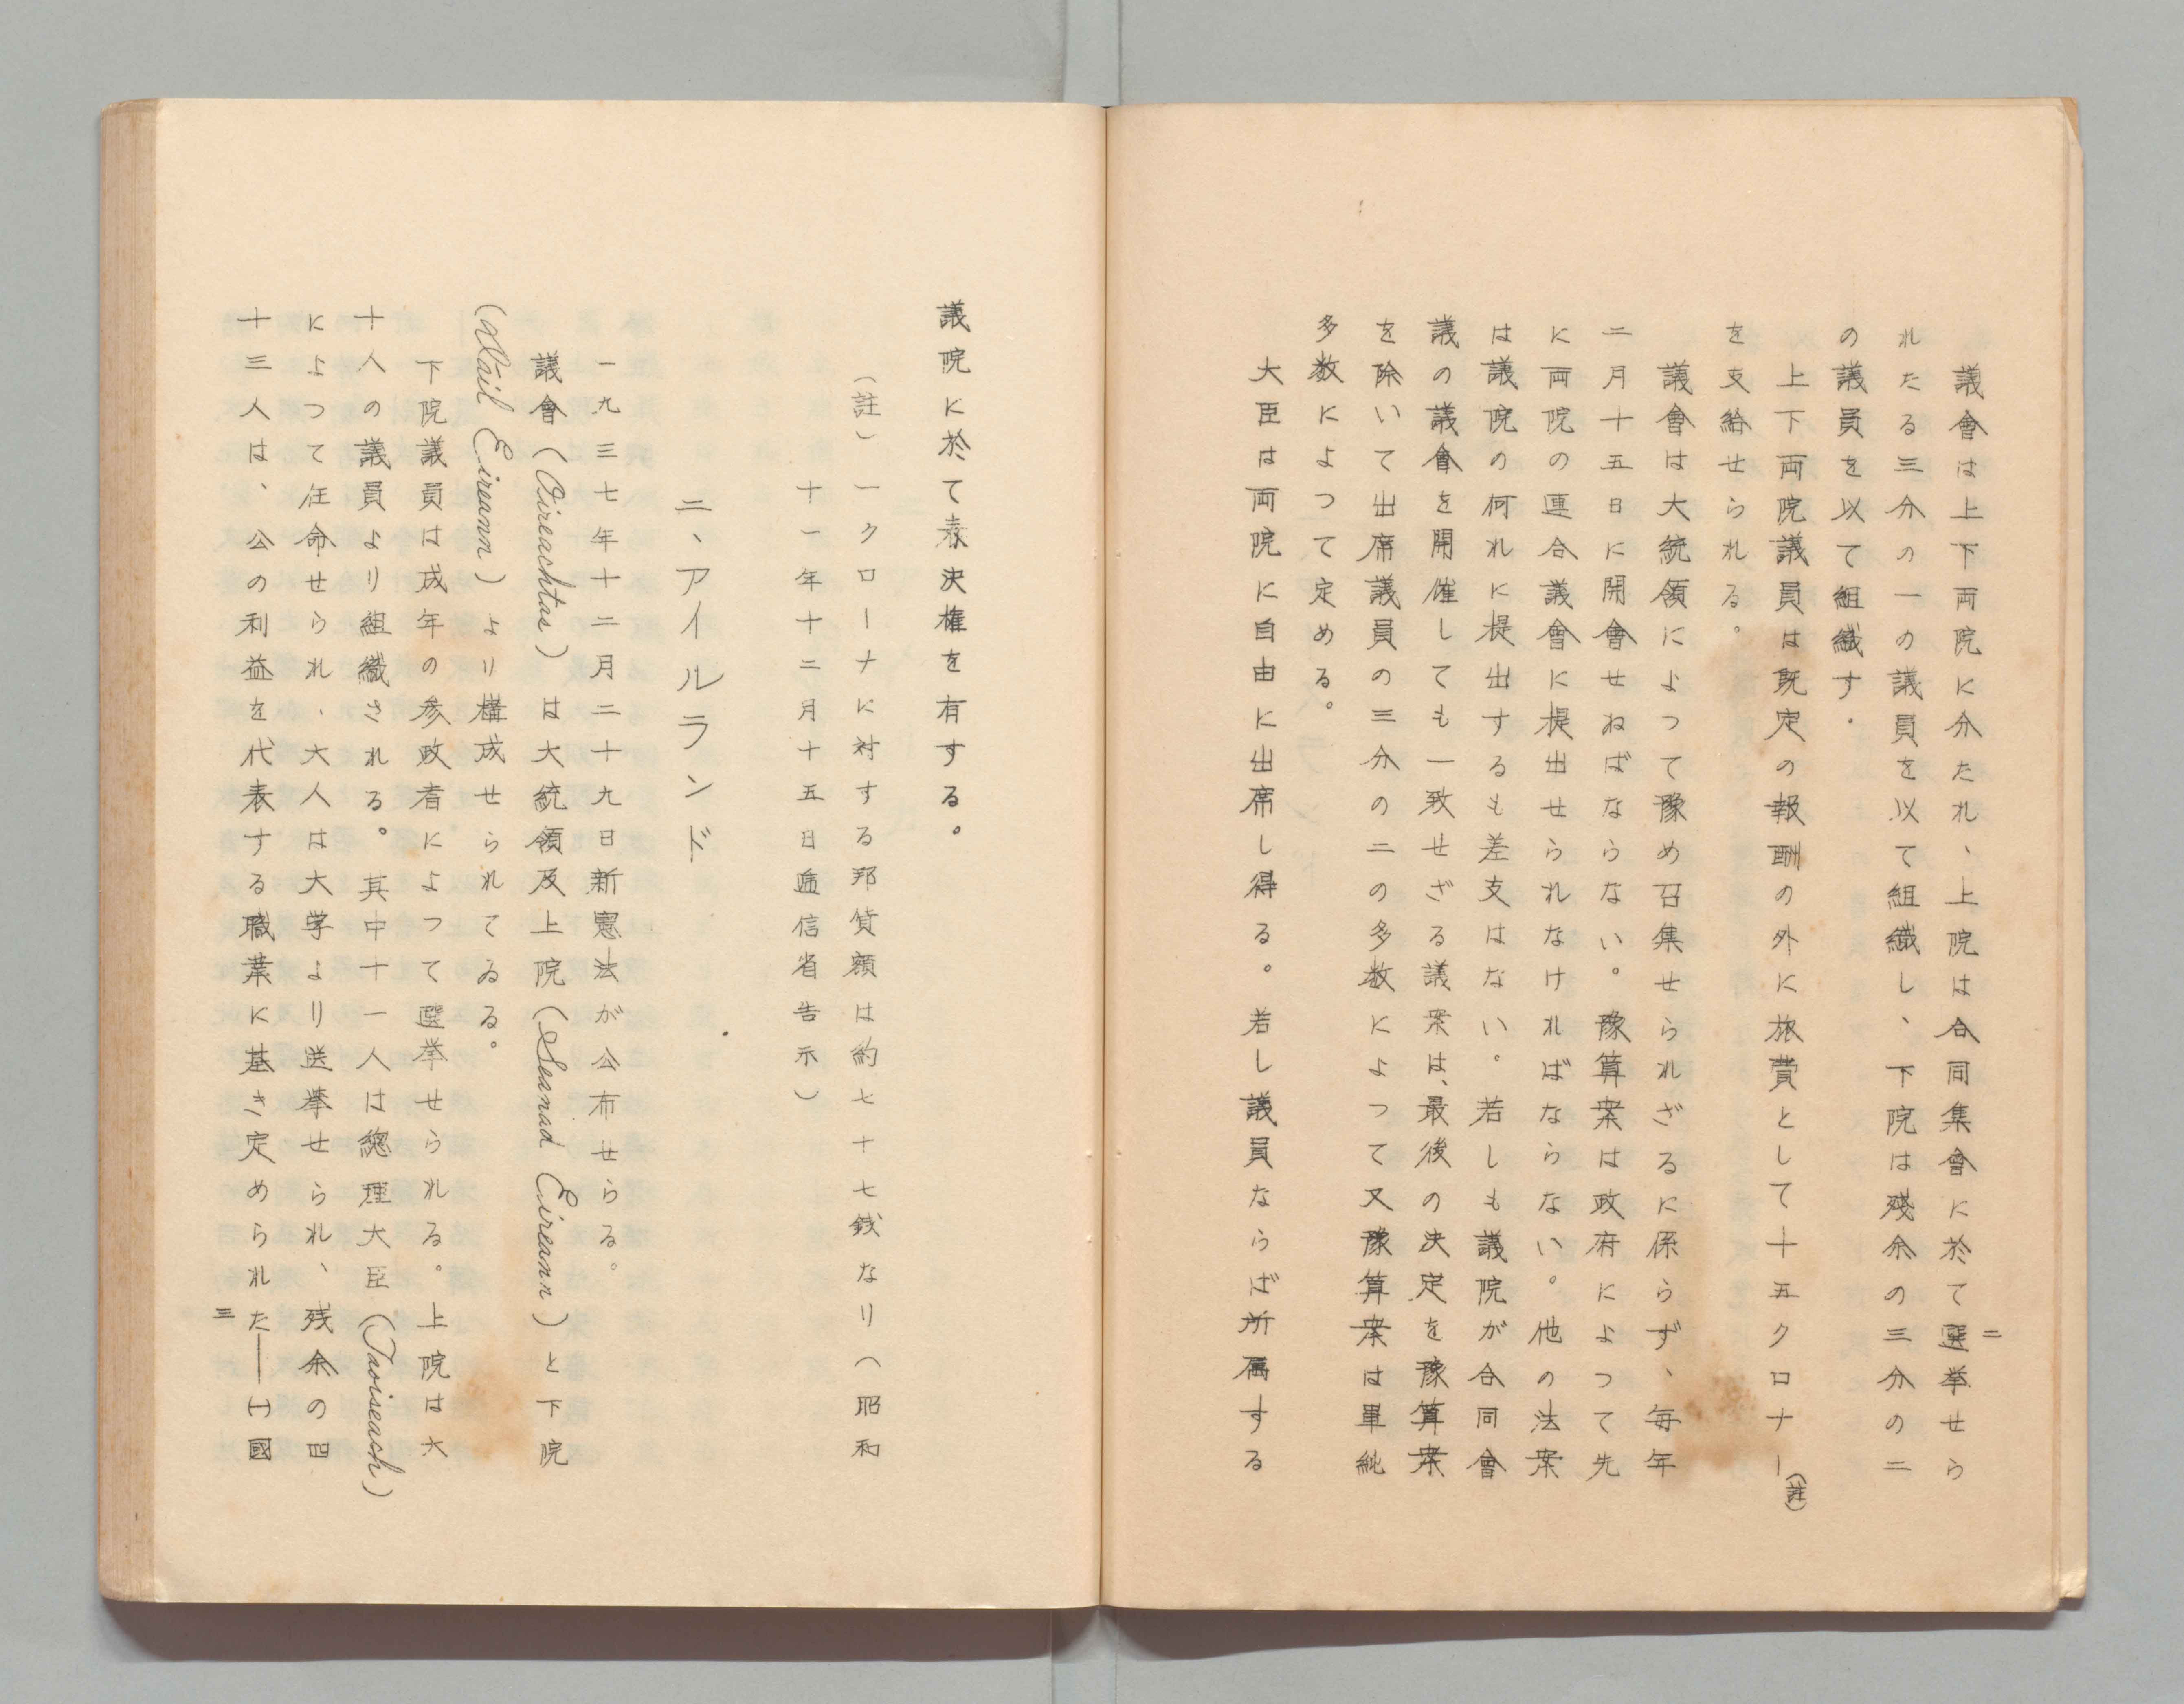 二
議會は上下両院に分たれ、上院は合同集會に於て選挙せら
れたる三分の一の議員を以て組織し、下院は残余の三分の二
の議員を以て組織す.
上下両院議員は既定の報酬の外に旅費として十五クロナー(註)
を支給せられる。
議會は大統領によつて豫め召集せられざるに係らず、毎年
二月十五日に開會せねばならない。豫算案は政府によつて先
に両院の連合議會に提出せられなければならない。他の法案
は議院の何れに提出するも差支はない。若しも議院が合同會
議の議會を開催しても一致せざる議案は、最後の決定を豫算案
を除いて出席議員の三分の二の多数によつて又豫算案は單純
多数によつて定める。
大臣は両院に自由に出席し得る。若し議員ならば所属する
議院に於て表決権を有する。
(註)一クローナに対する邦貨額は約七十七銭なり(昭和
十一年十二月十五日逓信省告示)
二、アイルランド
一九三七年十二月二十九日新憲法が公布せらる。
議會(Oireachtas)は大統領及上院(Seanad Eireann)と下院
(Dáil Eireann)より構成せられてゐる。
下院議員は成年の参政者によつて選挙せられる。上院は六
十人の議員より組織される。其中十一人は總理大臣(Taoiseach)
によつて任命せられ、六人は大学より送挙せられ、残余の四
十三人は、公の利益を代表する職業に基き定められた——(一)國
三